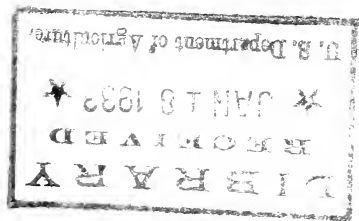 LIBRARY
RECEIVED
★ JAN 18 1933 ★
U. S. Department of Agriculture.